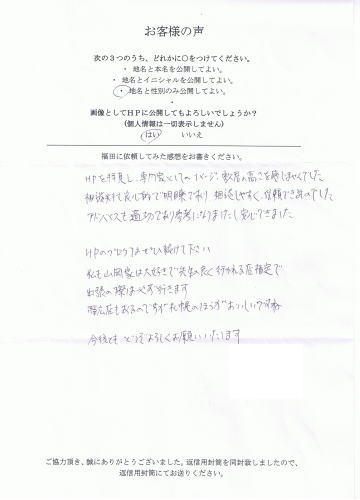 お客様の声
次の3つのうち、どれかに○をつけてください。
・ 地名と本名を公開してよい。
・ 地名とイニシャルを公開してよい。
・ 地名と性別のみ公開してよい。
画像としてHPに公開してもよろしいでしょうか?
(個人情報は一切表示しません)
はい　いいえ
福田に依頼してみた感想をお書きください。
HPを拝見し、専門家としてのイメージ、敷居の高さを感じませんでした
相談料も良心的で明瞭であり 相談しやすく、信頼できるものでした
アドバイスも適切であり参考になりましたし安心できました
HPのブログはぜひ続けて下さい
私も山岡家は大好きで
出張の際は必ず行きます
今後とも どうぞよろしくお願いいたします
ご協力頂き、誠にありがとうございました。返信用封筒を同封致しましたので、
返信用封筒にてお送りください。